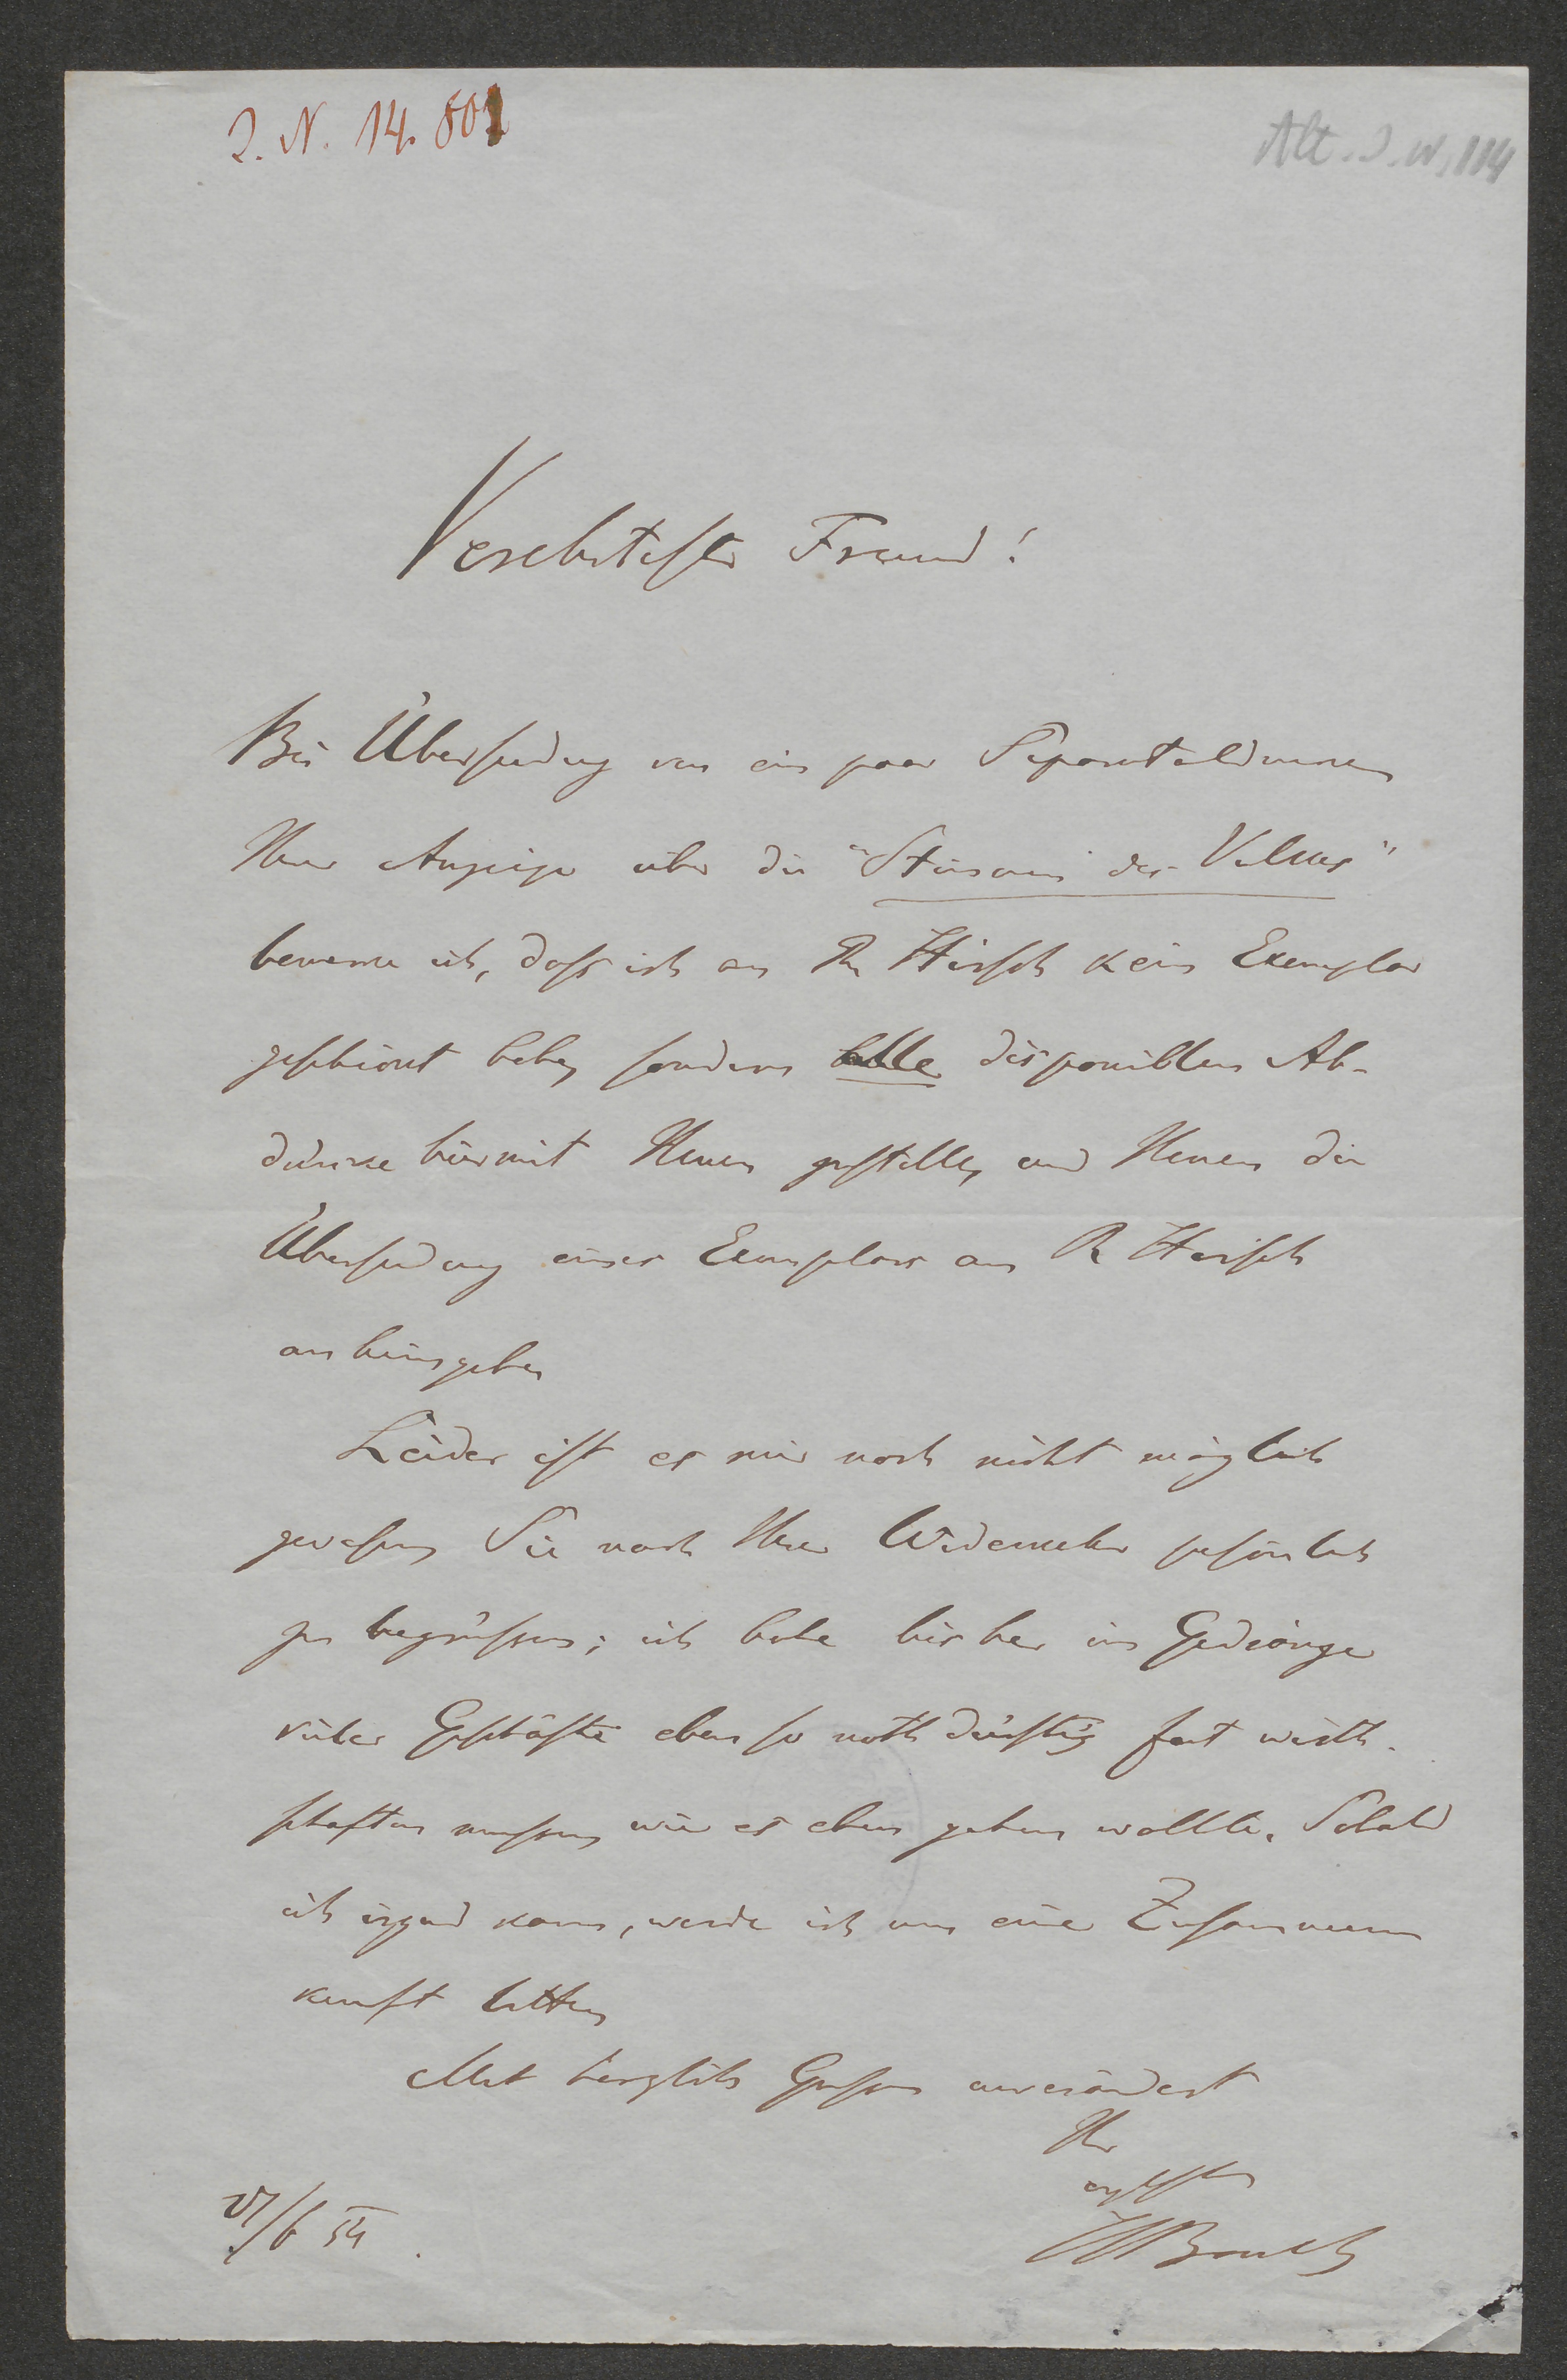 I. N. 14.801
Alt. I. N. 114
Verehrtester Freund!
Bei Übersendung von ein paar Separatabdrucken
Ihrer Anzeige über die "Stimmen des Volkes"
bemerke ich, dass ich an Dr Hirsch kein Exemplar
geschickt habe, sondern alle disponiblen Ab-
drücke hiermit Ihnen zustelle, und Ihnen die
Übersendung eines Exemplars an Dr Hirsch
anheimgebe
Leider ist es mir noch nicht möglich
gewesen, Sie nach Ihrer Wiederkehr persönlich
zu begrüssen; ich habe bisher im Gedränge
vieler Geschäfte eben so nothdürftig fort wirth-
schaften müssen, wie es eben gehen wollte. Sobald
ich irgend kann, werde ich um eine Zusammen
kunft bitten
Mit herzlichen Grüssen unverändert
Ihr
/6 54